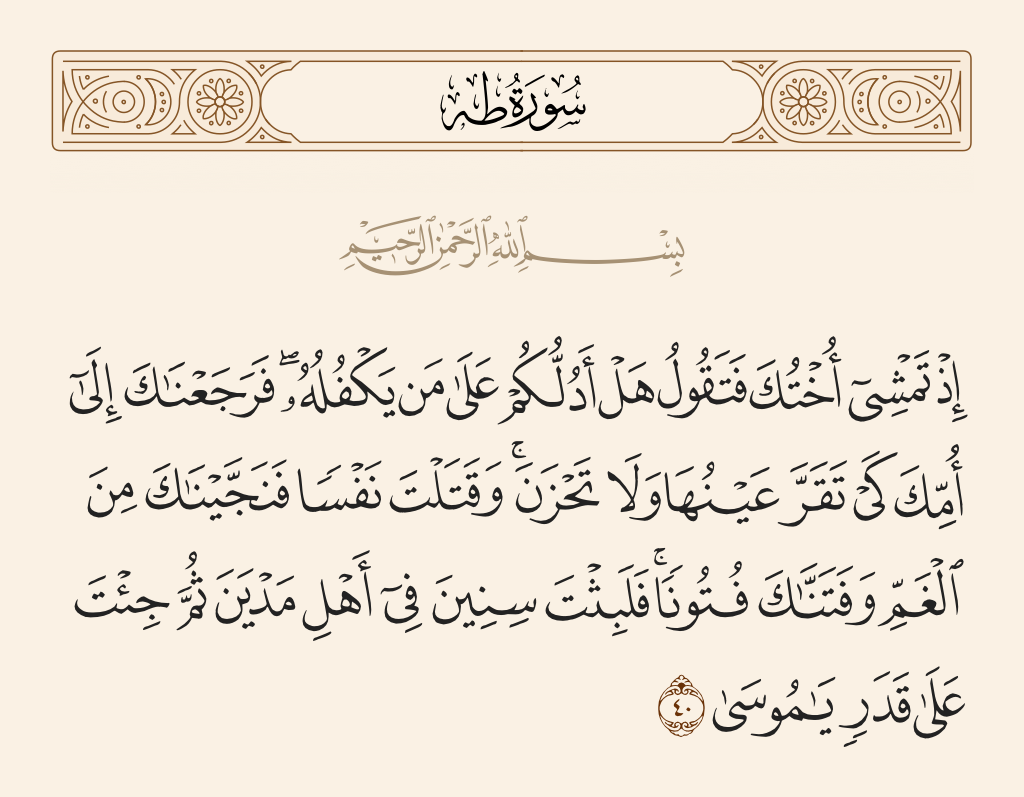 سُورَةُ طه
بِسْمِ ٱللَّهِ ٱلرَّحْمَٰنِ ٱلرَّحِيمِ
إِذْ تَمْشِىٓ أُخْتُكَ فَتَقُولُ هَلْ أَدُلُّكُمْ عَلَىٰ مَن يَكْفُلُهُۥ ۖ فَرَجَعْنَـٰكَ إِلَىٰٓ
أُمِّكَ كَىْ تَقَرَّ عَيْنُهَا وَلَا تَحْزَنَ ۚ وَقَتَلْتَ نَفْسًا فَنَجَّيْنَـٰكَ مِنَ
ٱلْغَمِّ وَفَتَنَّـٰكَ فُتُونًا ۚ فَلَبِثْتَ سِنِينَ فِىٓ أَهْلِ مَدْيَنَ ثُمَّ جِئْتَ
عَلَىٰ قَدَرٍ يَـٰمُوسَىٰ ٤٠